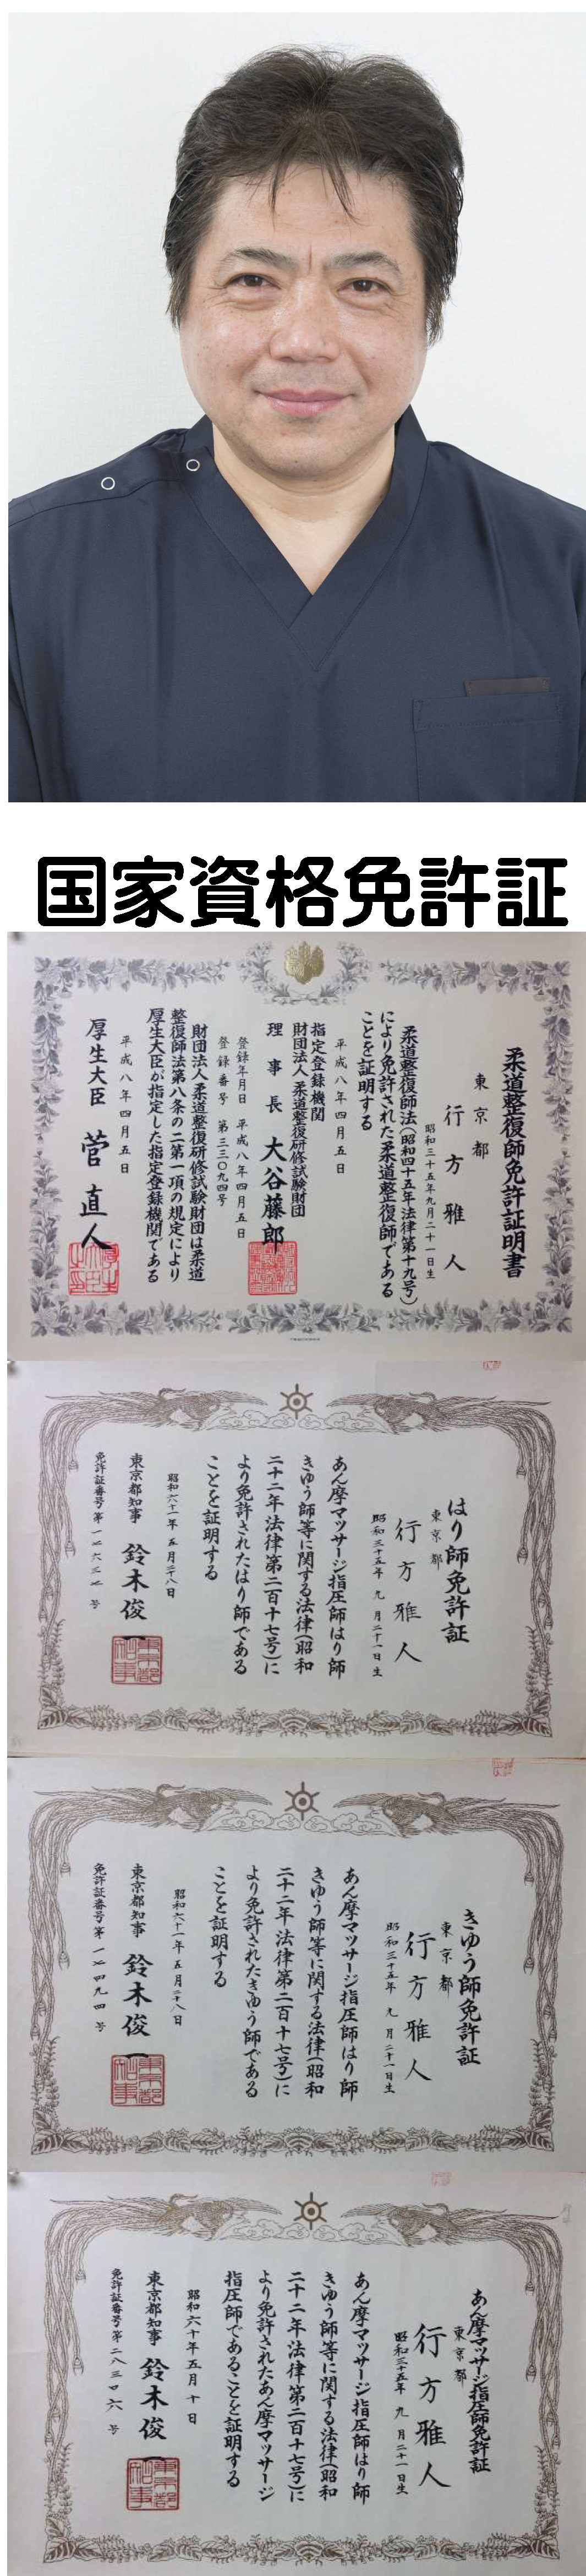 国家資格免許証
柔道整復師免許証明書
東京都
行方雅人
昭和三十五年九月二十一日生
柔道整復師法(昭和四十五年法律第十九号)
により免許された柔道整復師である
ことを証明する
平成八年四月五日
指定登録機関
財団法人 柔道整復研修試験財団
理事長 大谷藤郎
登録年月日 平成八年四月五日
登録番号 第三三〇九四号
財団法人柔道整復研修試験財団は柔道
整復師法第八条の二第一項の規定により
厚生大臣が指定した指定登録機関である
平成八年四月五日
厚生大臣 菅直人
はり師免許証
東京都
行方雅人
昭和三十五年 九月二十一日生
あん摩マッサージ指圧師はり師
きゆう師等に関する法律(昭和
二十二年法律第二百十七号)に
より免許されたはり師である
ことを証明する
昭和六十一年五月二十八日
東京都知事 鈴木俊一
免許証番号第 号
きゆう師免許証
東京都
行方雅人
昭和三十五年 九月二十一日生
あん摩マッサージ指圧師はり師
きゆう師等に関する法律(昭和
二十二年法律第二百十七号)に
より免許されたきゆう師である
ことを証明する
昭和六十一年五月二十八日
東京都知事 鈴木俊一
免許証番号第 号
あん摩マッサージ指圧師免許証
東京都
行方雅人
昭和三十五年 九月二十一日生
あん摩マッサージ指圧師はり師
きゆう師等に関する法律(昭和
二十二年法律第二百十七号)に
より免許されたあん摩マッサージ
指圧師であることを証明する
昭和六十年五月十日
東京都知事 鈴木俊一
免許証番号第 号